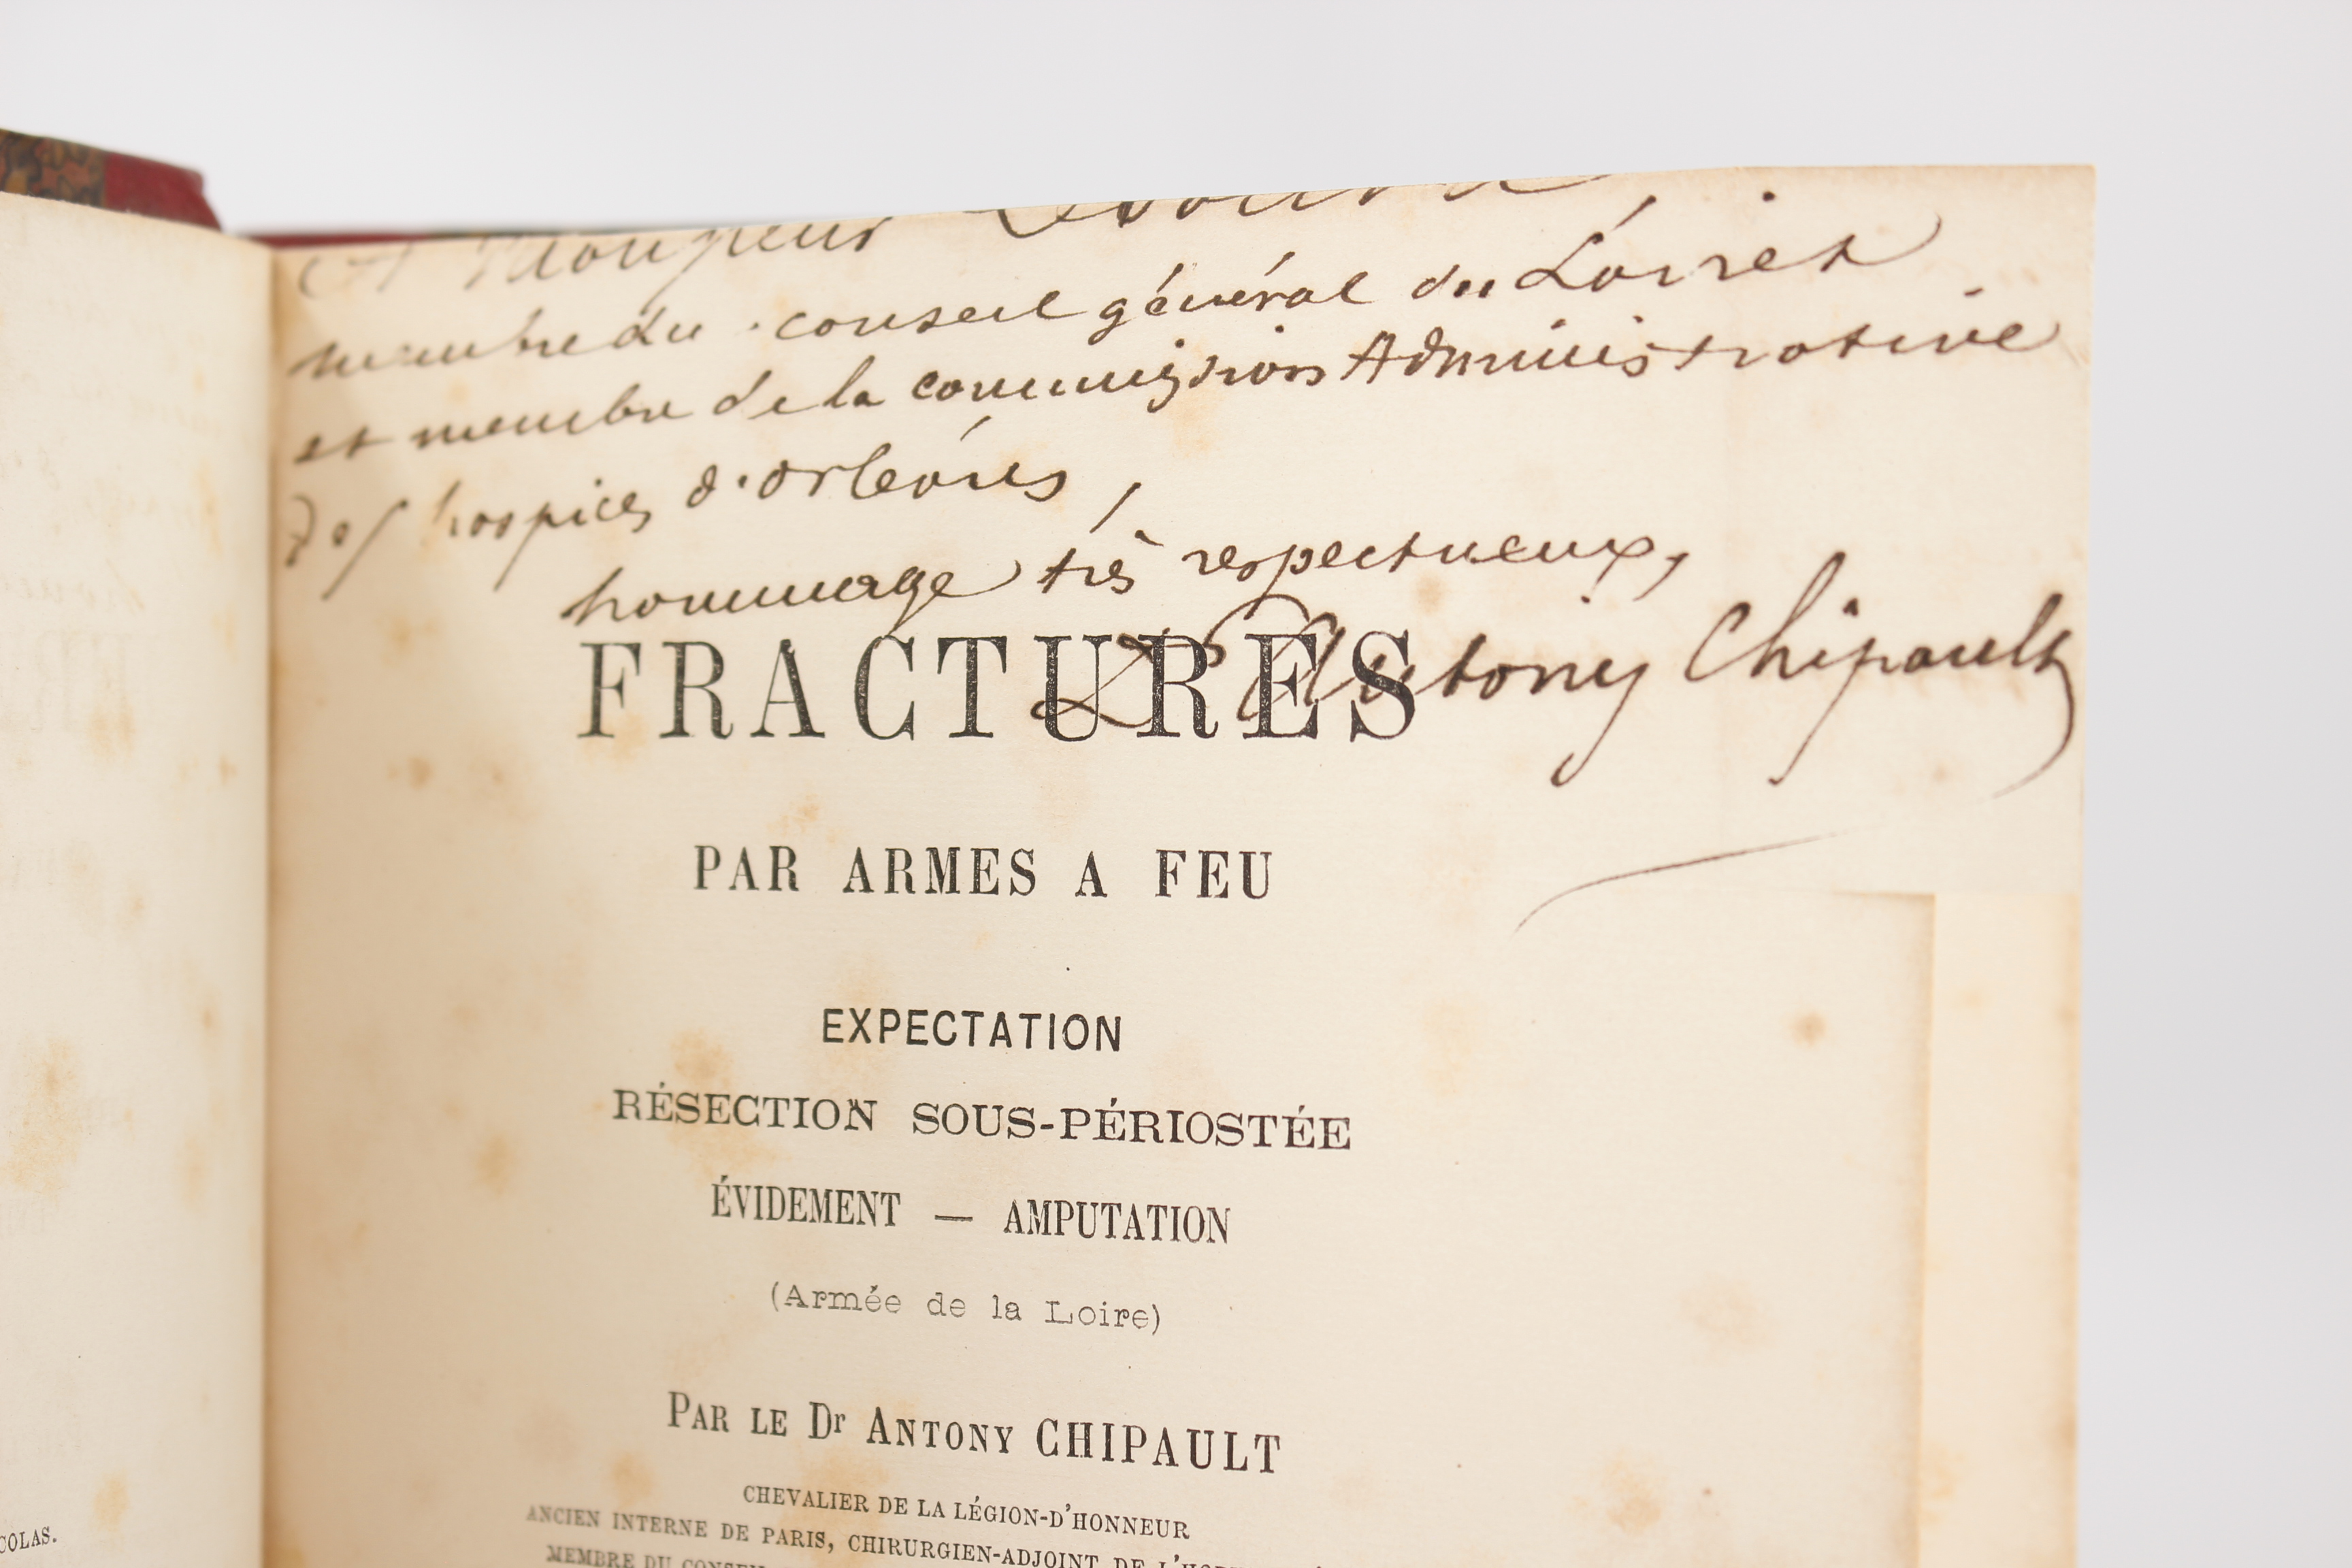 A Monsieur
membre du conseil général du Loiret
et membre de la commission Administrative
des hospices d'orléans,
hommage très respectueux,
Dr Antony Chipault
FRACTURES
PAR ARMES A FEU
EXPECTATION
RÉSECTION SOUS-PÉRIOSTÉE
ÉVIDEMENT — AMPUTATION
(Armée de la Loire)
PAR LE Dr ANTONY CHIPAULT
CHEVALIER DE LA LÉGION-D'HONNEUR
ANCIEN INTERNE DE PARIS, CHIRURGIEN-ADJOINT DE
MEMBRE DU
COLAS.